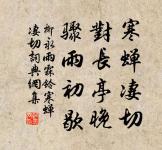 寒蟬凄切
對長亭晚
驟雨初歇
柳永雨霖鈴寒蟬
凄切詞典網集